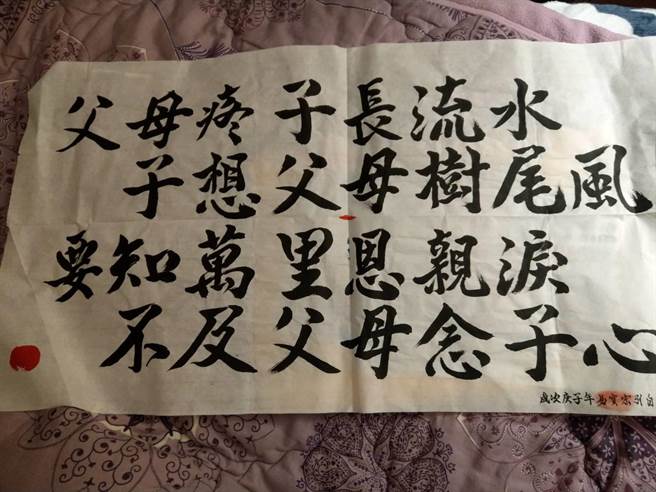 父母疼子長流水
子想父母樹尾風
要知萬里思親淚
不及父母念子心
歲次庚子年